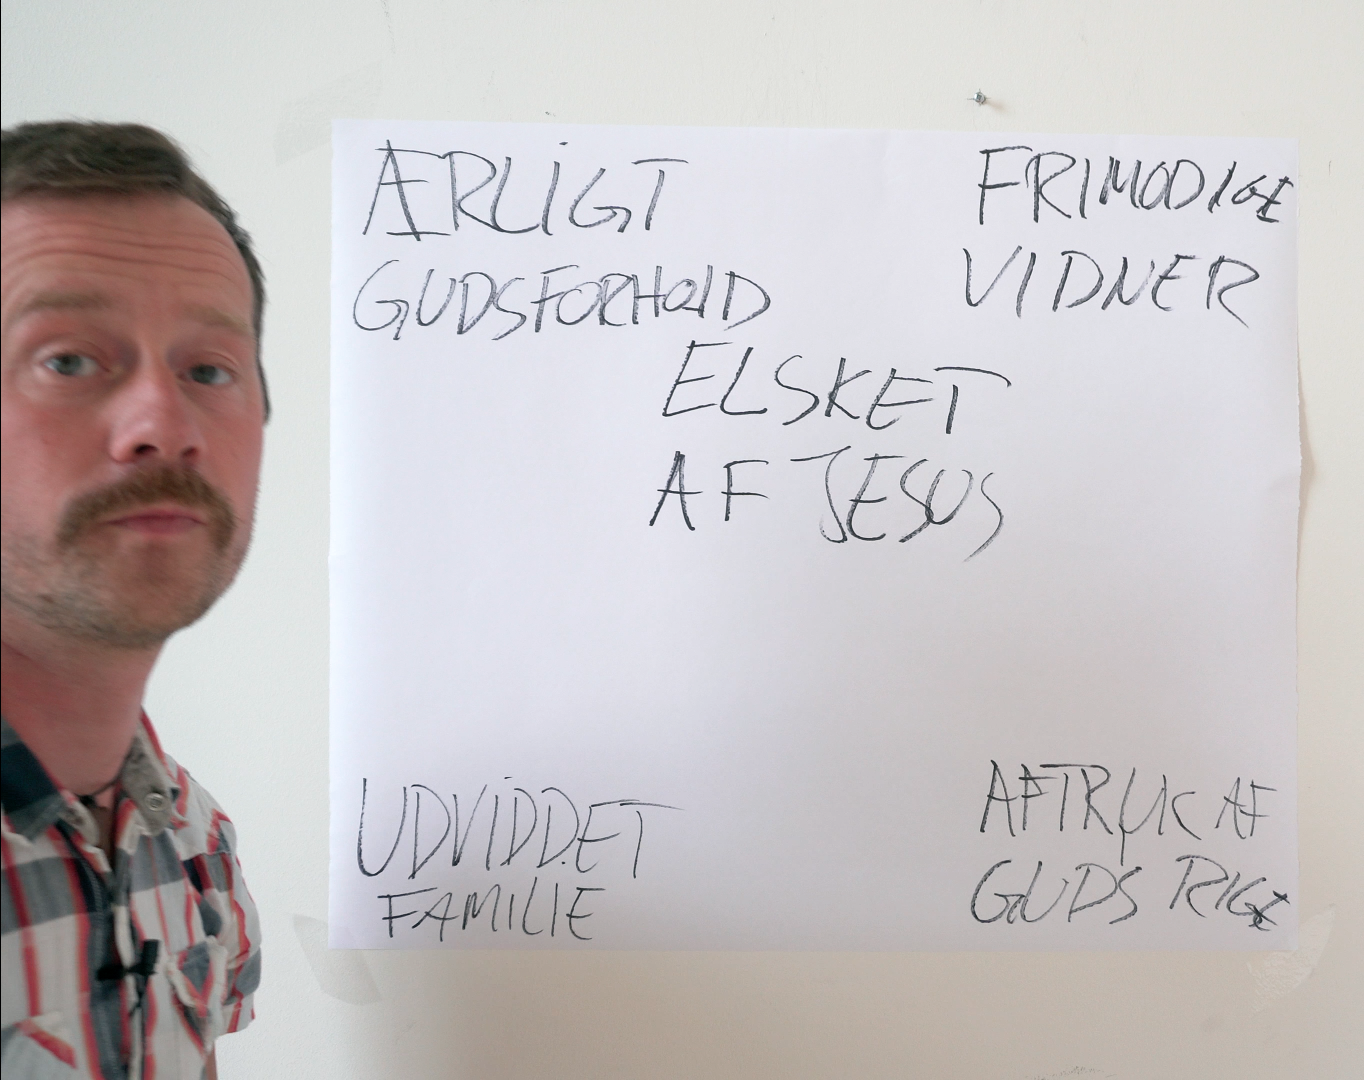 ÆRLIGT
GUDSFORHOLD
FRIMODIGE
VIDNER
ELSKET
AF JESUS
UDVIDDET
FAMILIE
AFTRYK AF
GUDS RIGE